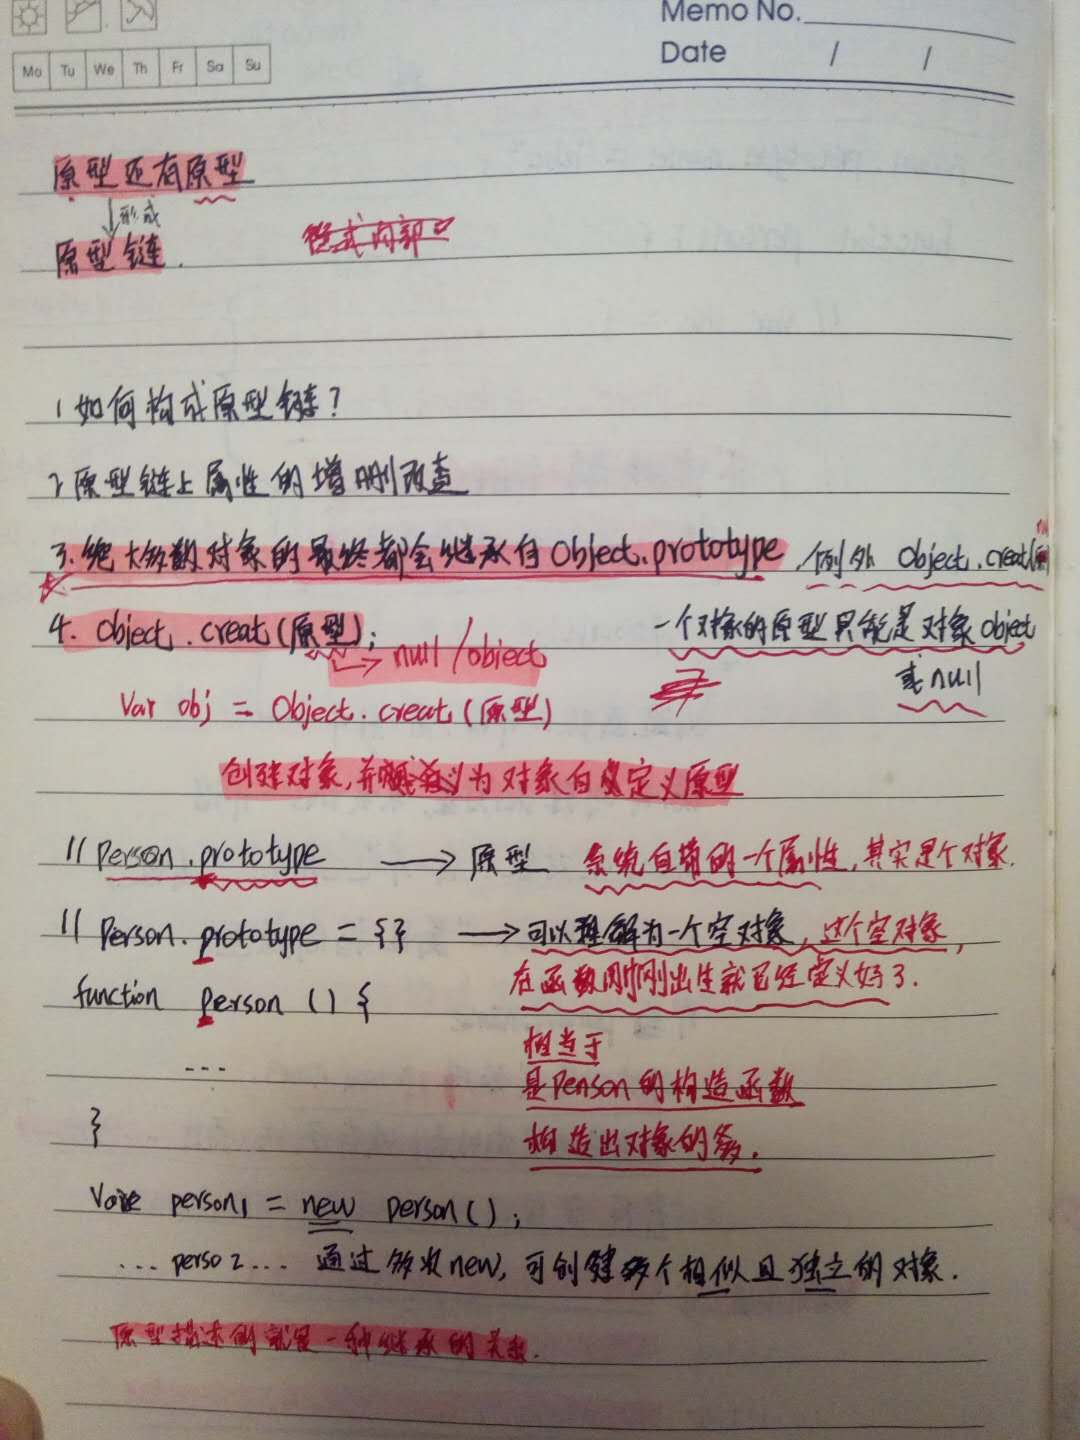 Memo No.
Mo Tu We Th Fr Sa Su
Date / /
原型还有原型
形成
原型链.
隐式内部
1 如何构成原型链?
2 原型链上属性的增删改查
3. 绝大多数对象的最终都会继承自Object.prototype, 例外 Object.creat(
4. Object.creat(原型);
一个对象的原型只能是对象object
null/object
或null
Var obj = Object.creat(原型)
创建对象,并 为对象自定义原型
// Person.prototype → 原型 系统自带的一个属性, 其实是个对象.
// Person.prototype = {} → 可以理解为一个空对象, 这个空对象,
在函数刚刚出生就已经定义好了.
function person () {
相当于
...
是Person的构造函数
}
构造出对象的爹.
Var person1 = new person();
... perso2... 通过多次new, 可创建多个相似且独立的对象.
原型描述的就是一种继承的关系.